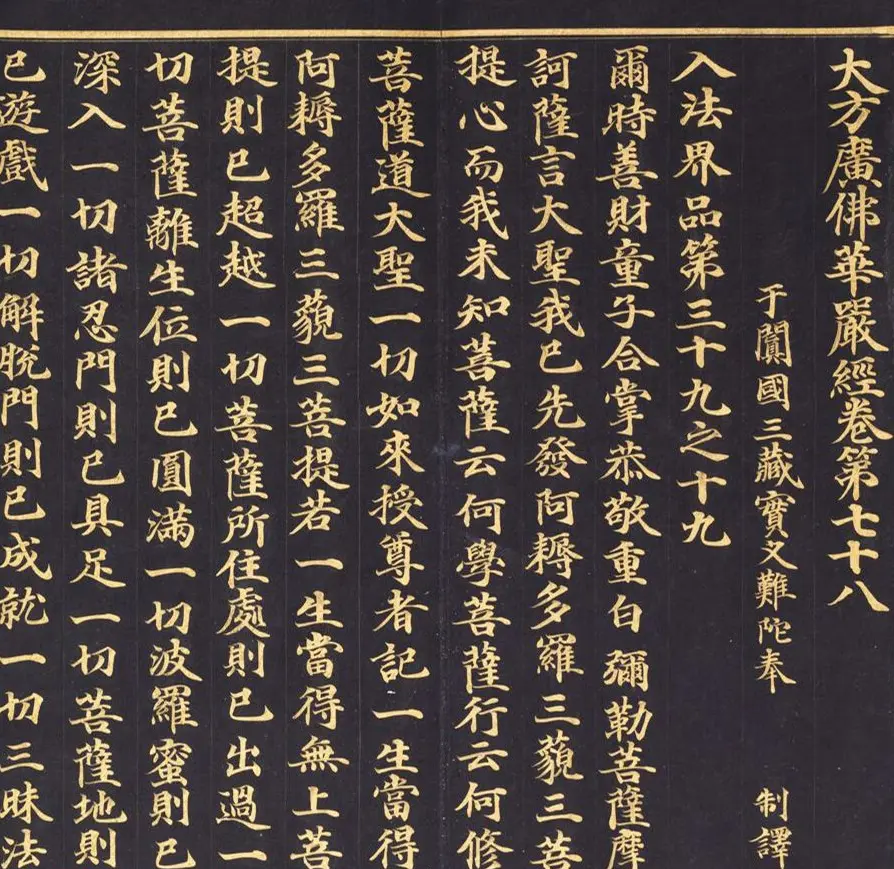 大方廣佛華嚴經卷第七十八
于闐國三藏實叉難陀奉 制譯
入法界品第三十九之十九
爾時善財童子合掌恭敬重白 彌勒菩薩摩
訶薩言大聖我已先發阿耨多羅三藐三菩
提心而我未知菩薩云何學菩薩行云何修
菩薩道大聖一切如來授尊者記一生當得
阿耨多羅三藐三菩提若一生當得無上菩
提則已超越一切菩薩所住處則已出過一
切菩薩離生位則已圓滿一切波羅蜜則已
深入一切諸忍門則已具足一切菩薩地則
已遊戲一切解脫門則已成就一切三昧法